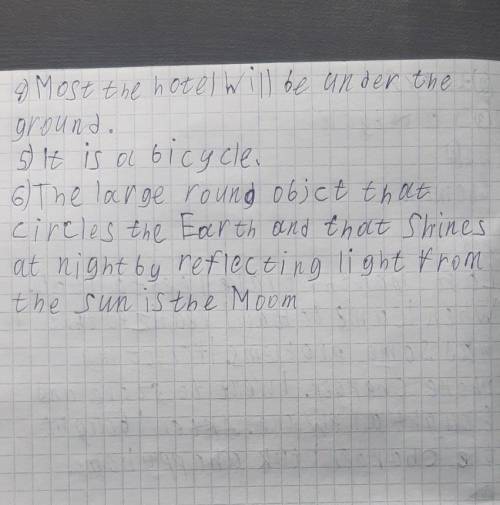 4) Most the hotel will be under the
ground.
5) It is a bicycle.
6) The large round objct that
circles the Earth and that Shines
at night by reflecting light from
the sun is the Moom